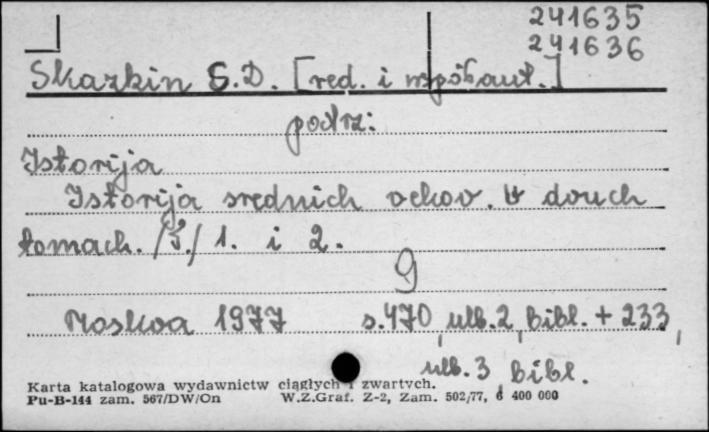 241635
241636
Skazkin S.D. [red. i współaut.]
podrz:
Istorija
Istorija srednich vekov. V dvuch
tomach. /T./ 1. i 2.
9
Moskva 1977 s.470, ulb.2, bibl. + 233,
ulb. 3, bibl.
Karta katalogowa wydawnictw ciągłych i zwartych.
Pu-B-144 zam. 567/DW/On W.Z.Graf. Z-2, Zam. 502/77, 6 400 000